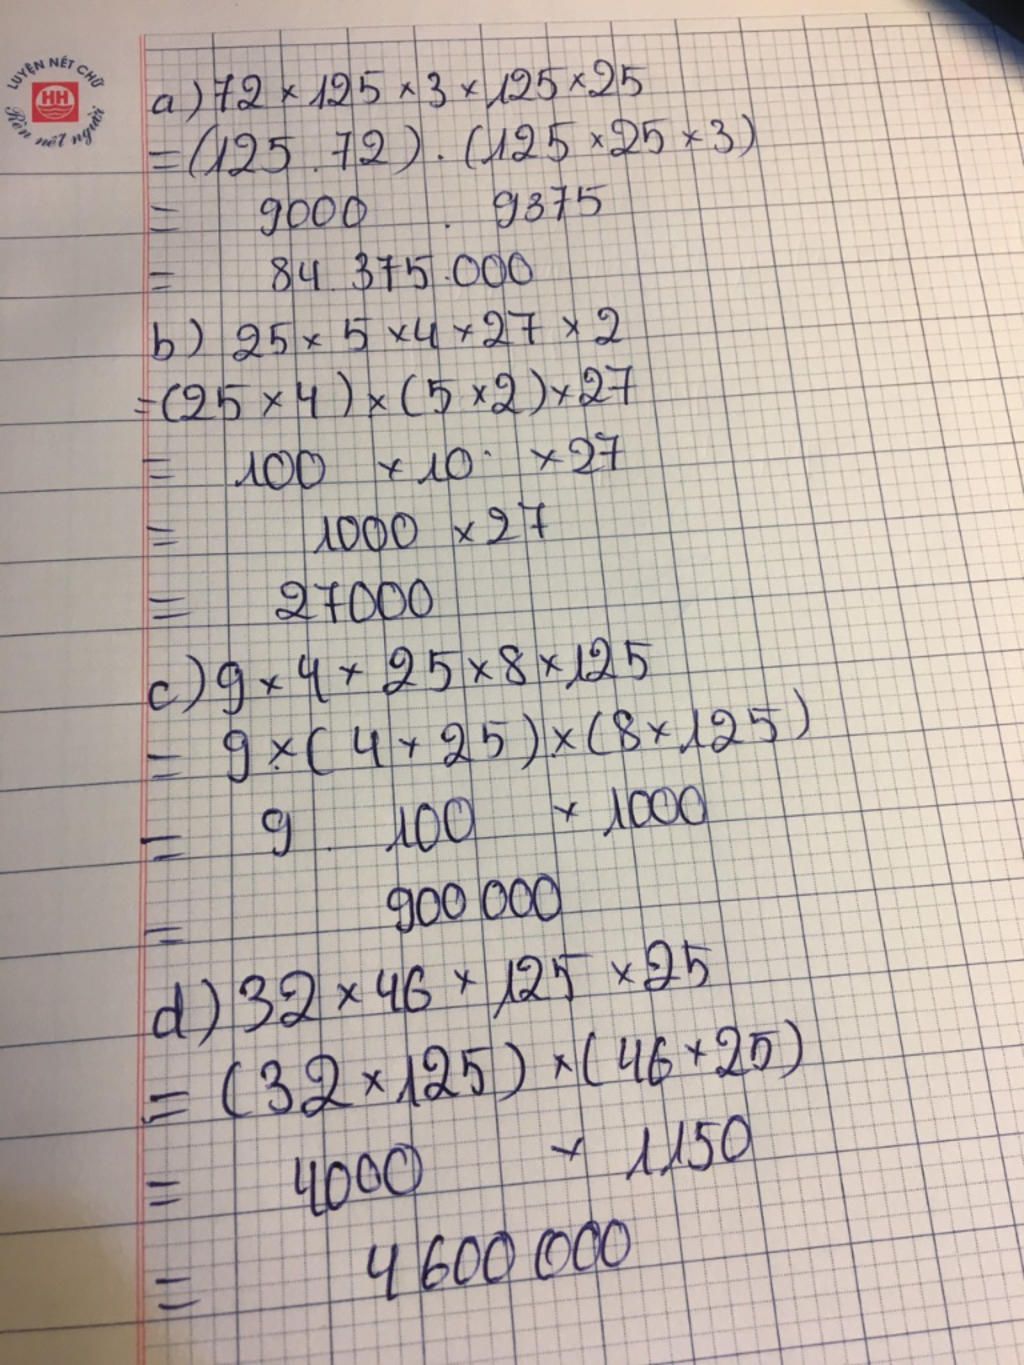 LUYỆN NÉT CHỮ
HH
Rèn nết người
a) 72 × 125 × 3 × 125 × 25
= (125 . 72) . (125 × 25 × 3)
= 9000 . 9375
= 84.375.000
b) 25 × 5 × 4 × 27 × 2
= (25 × 4) × (5 × 2) × 27
= 100 × 10 × 27
= 1000 × 27
= 27000
c) 9 × 4 × 25 × 8 × 125
= 9 × (4 × 25) × (8 × 125)
= 9 . 100 × 1000
= 900 000
d) 32 × 46 × 125 × 25
= (32 × 125) × (46 × 25)
= 4000 × 1150
= 4 600 000